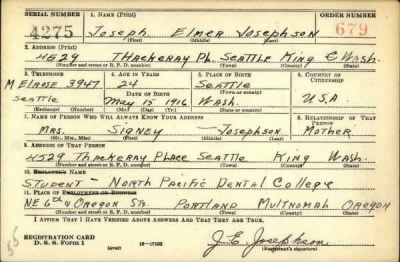 SERIAL NUMBER 1. NAME (Print) ORDER NUMBER
4275 Joseph Elmer Josephson 679
(First) (Middle) (Last)
2. ADDRESS (Print)
4529 Thackeray Pl. Seattle King Wash.
(Number and street or R. F. D. number) (Town) (County) (State)
3. TELEPHONE 4. AGE IN YEARS 5. PLACE OF BIRTH 6. COUNTRY OF CITIZENSHIP
MElrose 3947 24 Seattle
DATE OF BIRTH (Town or county)
Seattle May 15 1916 Wash. U.S.A.
(Exchange) (Number) (Mo.) (Day) (Yr.) (State or country)
7. NAME OF PERSON WHO WILL ALWAYS KNOW YOUR ADDRESS 8. RELATIONSHIP OF THAT PERSON
Mrs. Signey Josephson Mother
(Mr., Mrs., Miss) (First) (Middle) (Last)
9. ADDRESS OF THAT PERSON
4529 Thackeray Place Seattle King Wash.
(Number and street or R. F. D. number) (Town) (County) (State)
10. EMPLOYER'S NAME
Student - North Pacific Dental College
11. PLACE OF EMPLOYMENT OR BUSINESS
NE 6th & Oregon Sts. Portland Multnomah Oregon
(Number and street or R. F. D. number) (Town) (County) (State)
I AFFIRM THAT I HAVE VERIFIED ABOVE ANSWERS AND THAT THEY ARE TRUE.
REGISTRATION CARD
D. S. S. Form 1 (over) 16-17105 J. E. Josephson
(Registrant's signature)